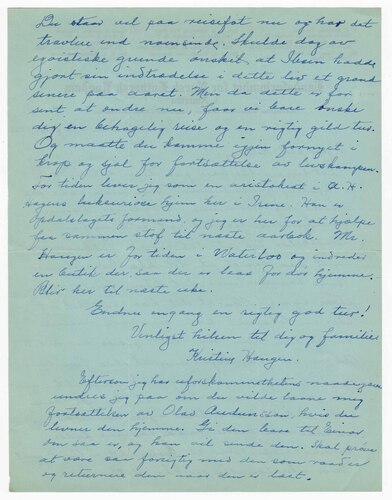 Du staar vel paa reisefot nu og har det
travlere end nonsinde. Skulde dog av
egoistiske grunde ønsket, at Ibsen hadde
gjort sin indtrædelse i dette liv et grand
senere paa aaret. Men da dette er for
sent at ændre nu, faar vi bare ønske
dig en behagelig reise og en rigtig gild tur.
Og maatte du komme igjen fornyet i
krop og sjæl for fortsættelse av livskampen.
For tiden lever jeg som en aristokrat i A. H.
Hagens luksuriøse hjem her i June. Han er
Opdalslagets formand, og jeg er her for at hjelpe
faa sammen stof til næste aarbok. Mr.
Haugen er for tiden i Waterloo og indreder
en butik der, saa der er bare for dig hjemme.
Blir her til næste uke.
Endnu engang en rigtig god tur!
Venligst hilsen til dig og familien
Kristine Haugen.
Efterson jeg har uforskammethetens naadegave
undres jeg paa om du vilde laane mig
fortsættelsen av Olav Audunssøn, hvis du
levner den hjemme. Gi den bare til Einar
om saa er, og han vil sende den. Skal prøve
at være saa forsigtig med den som raad er
og returnere den naar den er læst.